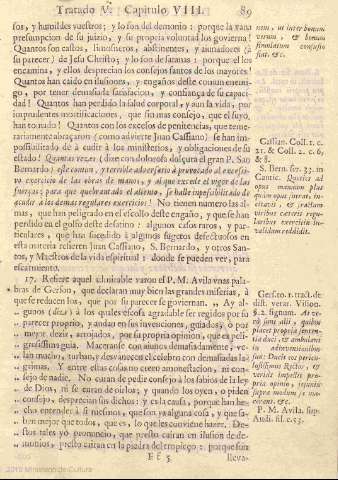 Tratado V. Capitulo VIII. 89
sos, y hutoil des vuestros; y lo son del demonio: porque la vana
presumpcion de su juizio, y su propria voluntad los govierna!
Quantos son castos, limosneros, abstinentes, y aiunadores (à
su parecer) de Jesu Christo; y lo son de Satanas: porque el los
encamina, y ellos desprecian los consejos santos de los mayores!
Quantos han caido en ilusiones, y engaños deste comun enemi-
go, por tener demasiada satisfacion, y confiança de su capaci-
dad! Quantos han perdido la salud corporal, y aun la vida, por
imprudentes mortificaciones, que sin mas consejo, que el suyo,
han tomado! Quantos con los excesos de penitencias, que teme-
rariamente abraçaron (como advierte Juan Cassiano) se han im-
possibilitado de acudir à los ministerios, y obligaciones de su
estado! Quamas vezes (dize con dolorosa dolsura el gran P. San
Bernardo) este comun, y terrible adversario à provocado al excesi-
vo exercicio de las obras de manos, y al que excede al vigor de las
fuerças; para que quebrantado el aliento, se halle impossibilitado de
acudir à los demas regulares exercicios! No tienen numero las al-
mas, que han peligrado en el escollo deste engaño, y que se han
perdido en el golfo deste desatino: algunos casos raros, y par-
ticulares, que han sucedido à algunos sugetos desastrosos en
esta materia refieren Juan Cassiano, S. Bernardo, y otros San-
tos, y Maestros de la vida espiritual: donde se pueden ver, para
escarmiento.
17. Refiere aquel admirable varon el P. M. Avila unas pala-
bras de Gerson, que declaran muy bien las grandes miserias, à
que se reducen los, que por su parecer se goviernan. „ Ay al-
„ gunos (dize) à los quales es cosa agradable ser regidos por su
„ parecer proprio, y andar en sus invenciones, guiados, ò por
„ mejor dezir, arrojados, por su propria opinion, que es peli-
„ grosissima guia. Maceranse con aiunos demasiadamente, ve-
„ lan mucho, turban, y desvanecen el celebro con demasiadas la-
„ grimas. Y entre estas cosas no creen amonestacion, ni con-
„ sejo de nadie. No curan de pedir consejo à los sabios de la ley
„ de Dios, ni se curan de oirlos; y quando los oyen, ò piden
„ consejo, desprecian sus dichos; y es la causa, porque han he-
„ cho entender à si mesmos, que son ya alguna cosa, y que sa-
„ ben mejor que todos, que es, lo que les conviene hazer. De-
„ stos tales yo pronuncio, que presto cairan en ilusion de de-
„ monios, presto cairan en la piedra del tropieço: porque son
Ff 5 lleva-
nem, ut inter bonum
verum, & bonum
simulatum confusio
fiat, &c.
Cassian. Coll. 1. c.
21. & Coll. 2. c. 6,
& 8.
S. Bern. ser. 33. in
Cantic. Quoties ad
opus manuum plus
quàm opus, incitavit, & fractum
viribus ceteris regu-
laribus exercitiis in-
validum reddidit.
Gerso to. 1. tract. de
dist. verar. Vision.
§. 2. signum.
P. M. Avila. sup.
Audi. fil. c. 53.
2010 Ministerio de Cultura